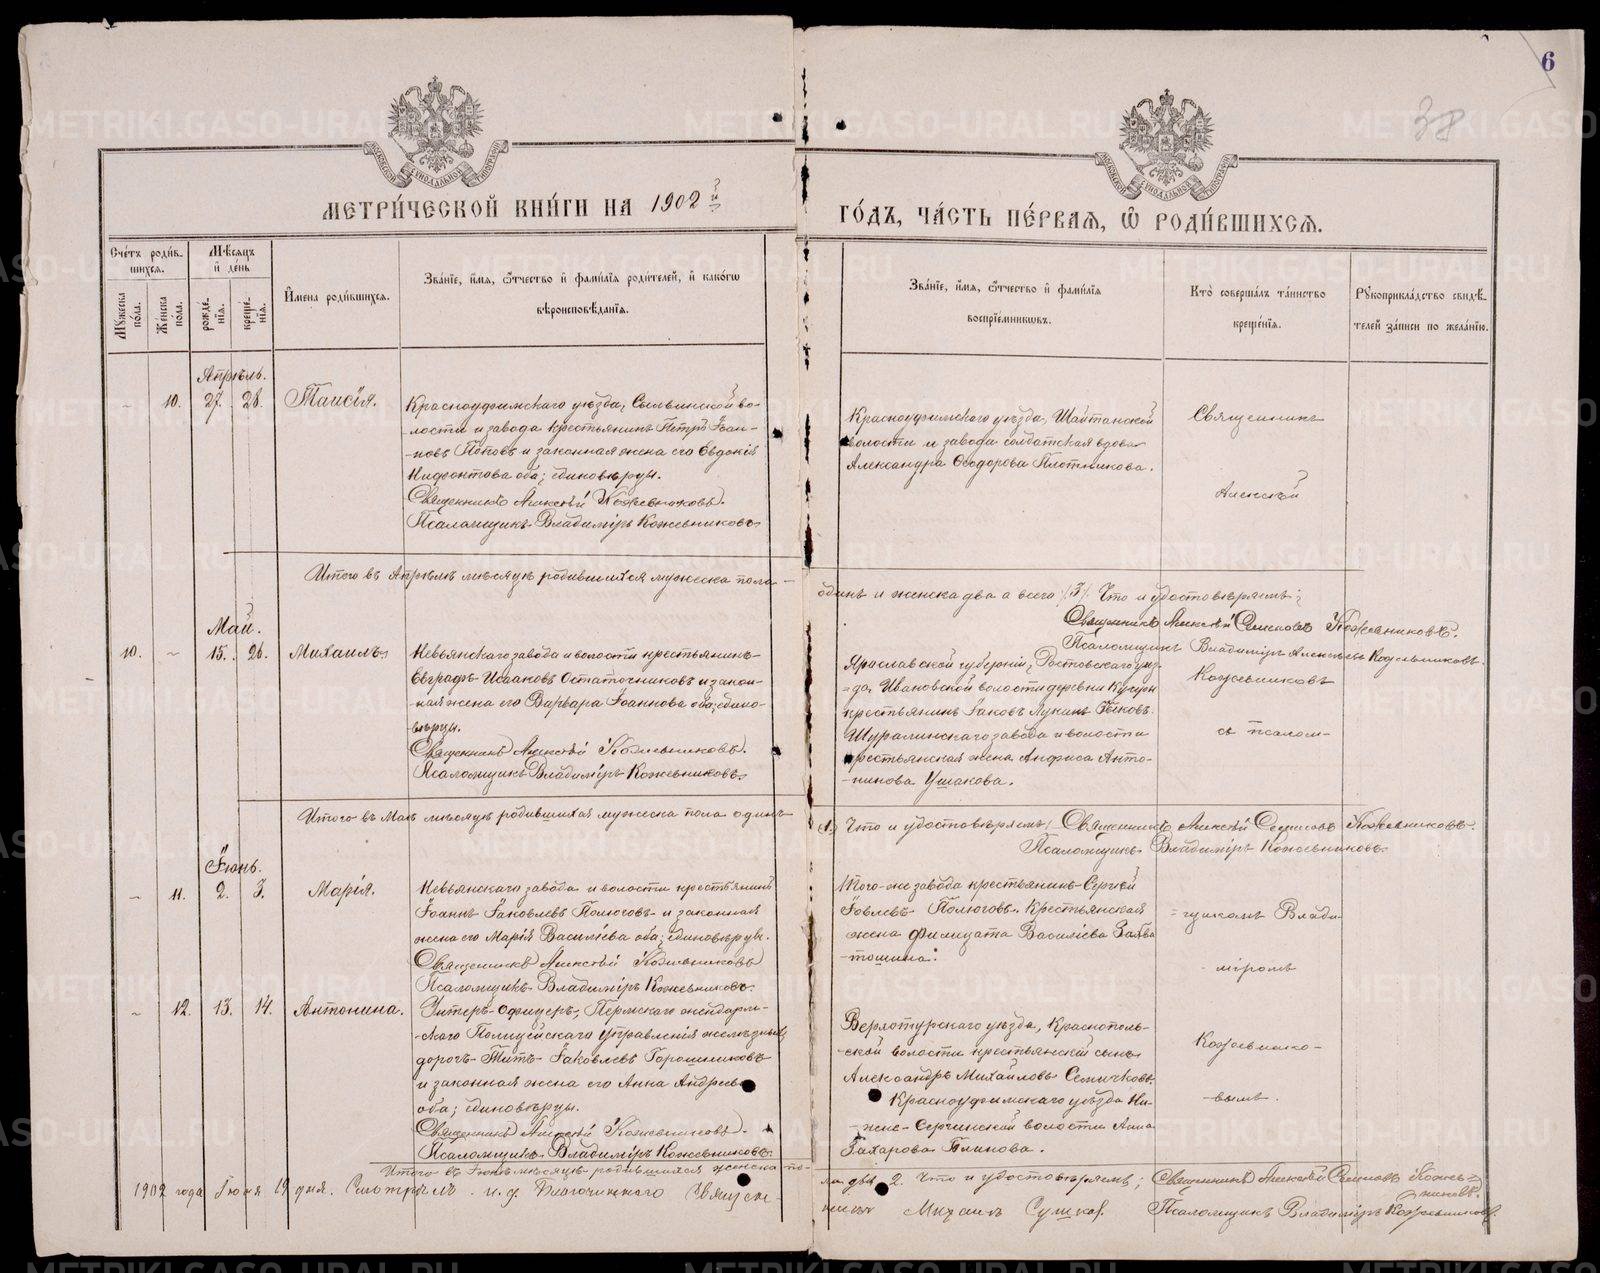 6
38
МЕТРИ́ЧЕСКОЙ КНИ́ГИ НА 1902й
ГО́ДЪ, ЧА́СТЬ ПЕ́РВАѦ, Ѡ҆ РОДИ́ВШИХСѦ.
Сче́тъ роди́в-
шихсѧ.
Мѣ́сѧцъ
и҆ де́нь
Мꙋ́жеска по́ла.
Же́нска по́ла.
рожде́-
нїѧ.
креще́-
нїѧ.
И҆мена̀ роди́вшихсѧ.
Зва́нїе, и҆́мѧ, ѻ҆́тчество и҆ фами́лїѧ роди́телей, и҆ како́гѡ
вѣроисповѣ́данїѧ.
Зва́нїе, и҆́мѧ, ѻ҆́тчество и҆ фами́лїѧ
воспрїе́мникѡвъ.
Кто̀ соверша́лъ та́инство
креще́нїѧ.
Рꙋкоприкла́дство свидѣ́-
телей за́писи по жела́нїю.
Апрѣль.
10. 27. 28. Таисія.
Красноуфимскаго уѣзда, Сылвинской во-
лости и завода крестьянинъ Петръ Іоан-
новъ Поповъ и законная жена его Евдокія
оба; единовѣрцы.
Священникъ Алексѣй Кожевниковъ.
Псаломщикъ Владиміръ Кожевниковъ.
Красноуфимскаго уѣзда, Шайтанской
волости и завода солдатская вдова
Александра Ѳеодорова Плотникова.
Священникъ
Алексѣй
Итого въ Апрѣлѣ мѣсяцѣ родившихся мужеска пола
одинъ и женска два а всего (3) Что и удостовѣряемъ;
Священникъ Алексѣй Симеоновъ Кожевниковъ.
Псаломщикъ Владиміръ Алексѣевъ Кожевниковъ.
Май.
10. 15. 26. Михаилъ.
Невьянскаго завода и волости крестьянинъ
Евграфъ Исааковъ Остаточниковъ и закон-
ная жена его Варвара Іоаннова оба; едино-
вѣрцы.
Священникъ Алексѣй Кожевниковъ.
Псаломщикъ Владиміръ Кожевниковъ.
Ярославской губерніи, Ростовскаго уѣз-
да, Ивановской волости деревни
крестьянинъ Іаковъ Лукинъ Быковъ.
Шуралинскаго завода и волости
крестьянская жена Анфиса Анто-
нинова Ушакова.
Кожевниковъ
съ псалом-
Итого въ Маѣ мѣсяцѣ родившихся мужеска пола одинъ
(1) Что и удостовѣряемъ; Священникъ Алексѣй Симеоновъ Кожевниковъ.
Псаломщикъ Владиміръ Кожевниковъ.
Іюнь.
11. 2. 3. Марія.
Невьянскаго завода и волости крестьянинъ
Іоаннъ Іаковлевъ Полюговъ и законная
жена его Марія Василіева оба; единовѣрцы.
Священникъ Алексѣй Кожевниковъ
Псаломщикъ Владиміръ Кожевниковъ.
Того-же завода крестьянинъ Сергѣй
Іовлевъ Полюговъ. Крестьянская
жена Филицата Василіева
щикомъ Влади-
міромъ
12. 13. 14. Антонина.
Унтеръ-офицеръ, Пермскаго жандарм-
скаго Полицейскаго управленія желѣзныхъ
дорогъ Титъ Іаковлевъ Горошниковъ
и законная жена его Анна Андреева
оба; единовѣрцы.
Священникъ Алексѣй Кожевниковъ.
Псаломщикъ Владиміръ Кожевниковъ.
Верхотурскаго уѣзда, Краснополь-
ской волости крестьянскій сынъ
Александръ Михайловъ Семячковъ.
Красноуфимскаго уѣзда Ни-
жне-Сергинской волости Анна
Захарова Блинова.
Кожевнико-
вымъ.
Итого въ Іюнѣ мѣсяцѣ родившихся женска по-
ла двѣ 2. Что и удостовѣряемъ; Священникъ Алексѣй Симеоновъ Кожев-
никовъ.
1902 года Іюня 19 дня. Смотрѣлъ и. д. Благочиннаго Священ-
никъ Михаилъ Сушков
Псаломщикъ Владиміръ Кожевниковъ.